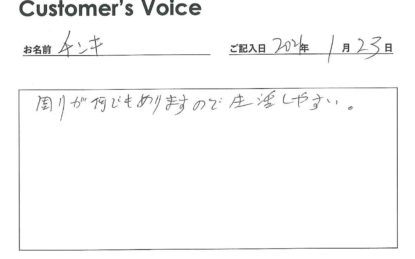 Customer's Voice
お名前 チンキ ご記入日 2021年 1月23日
周りが何でもありますので生活しやすい。